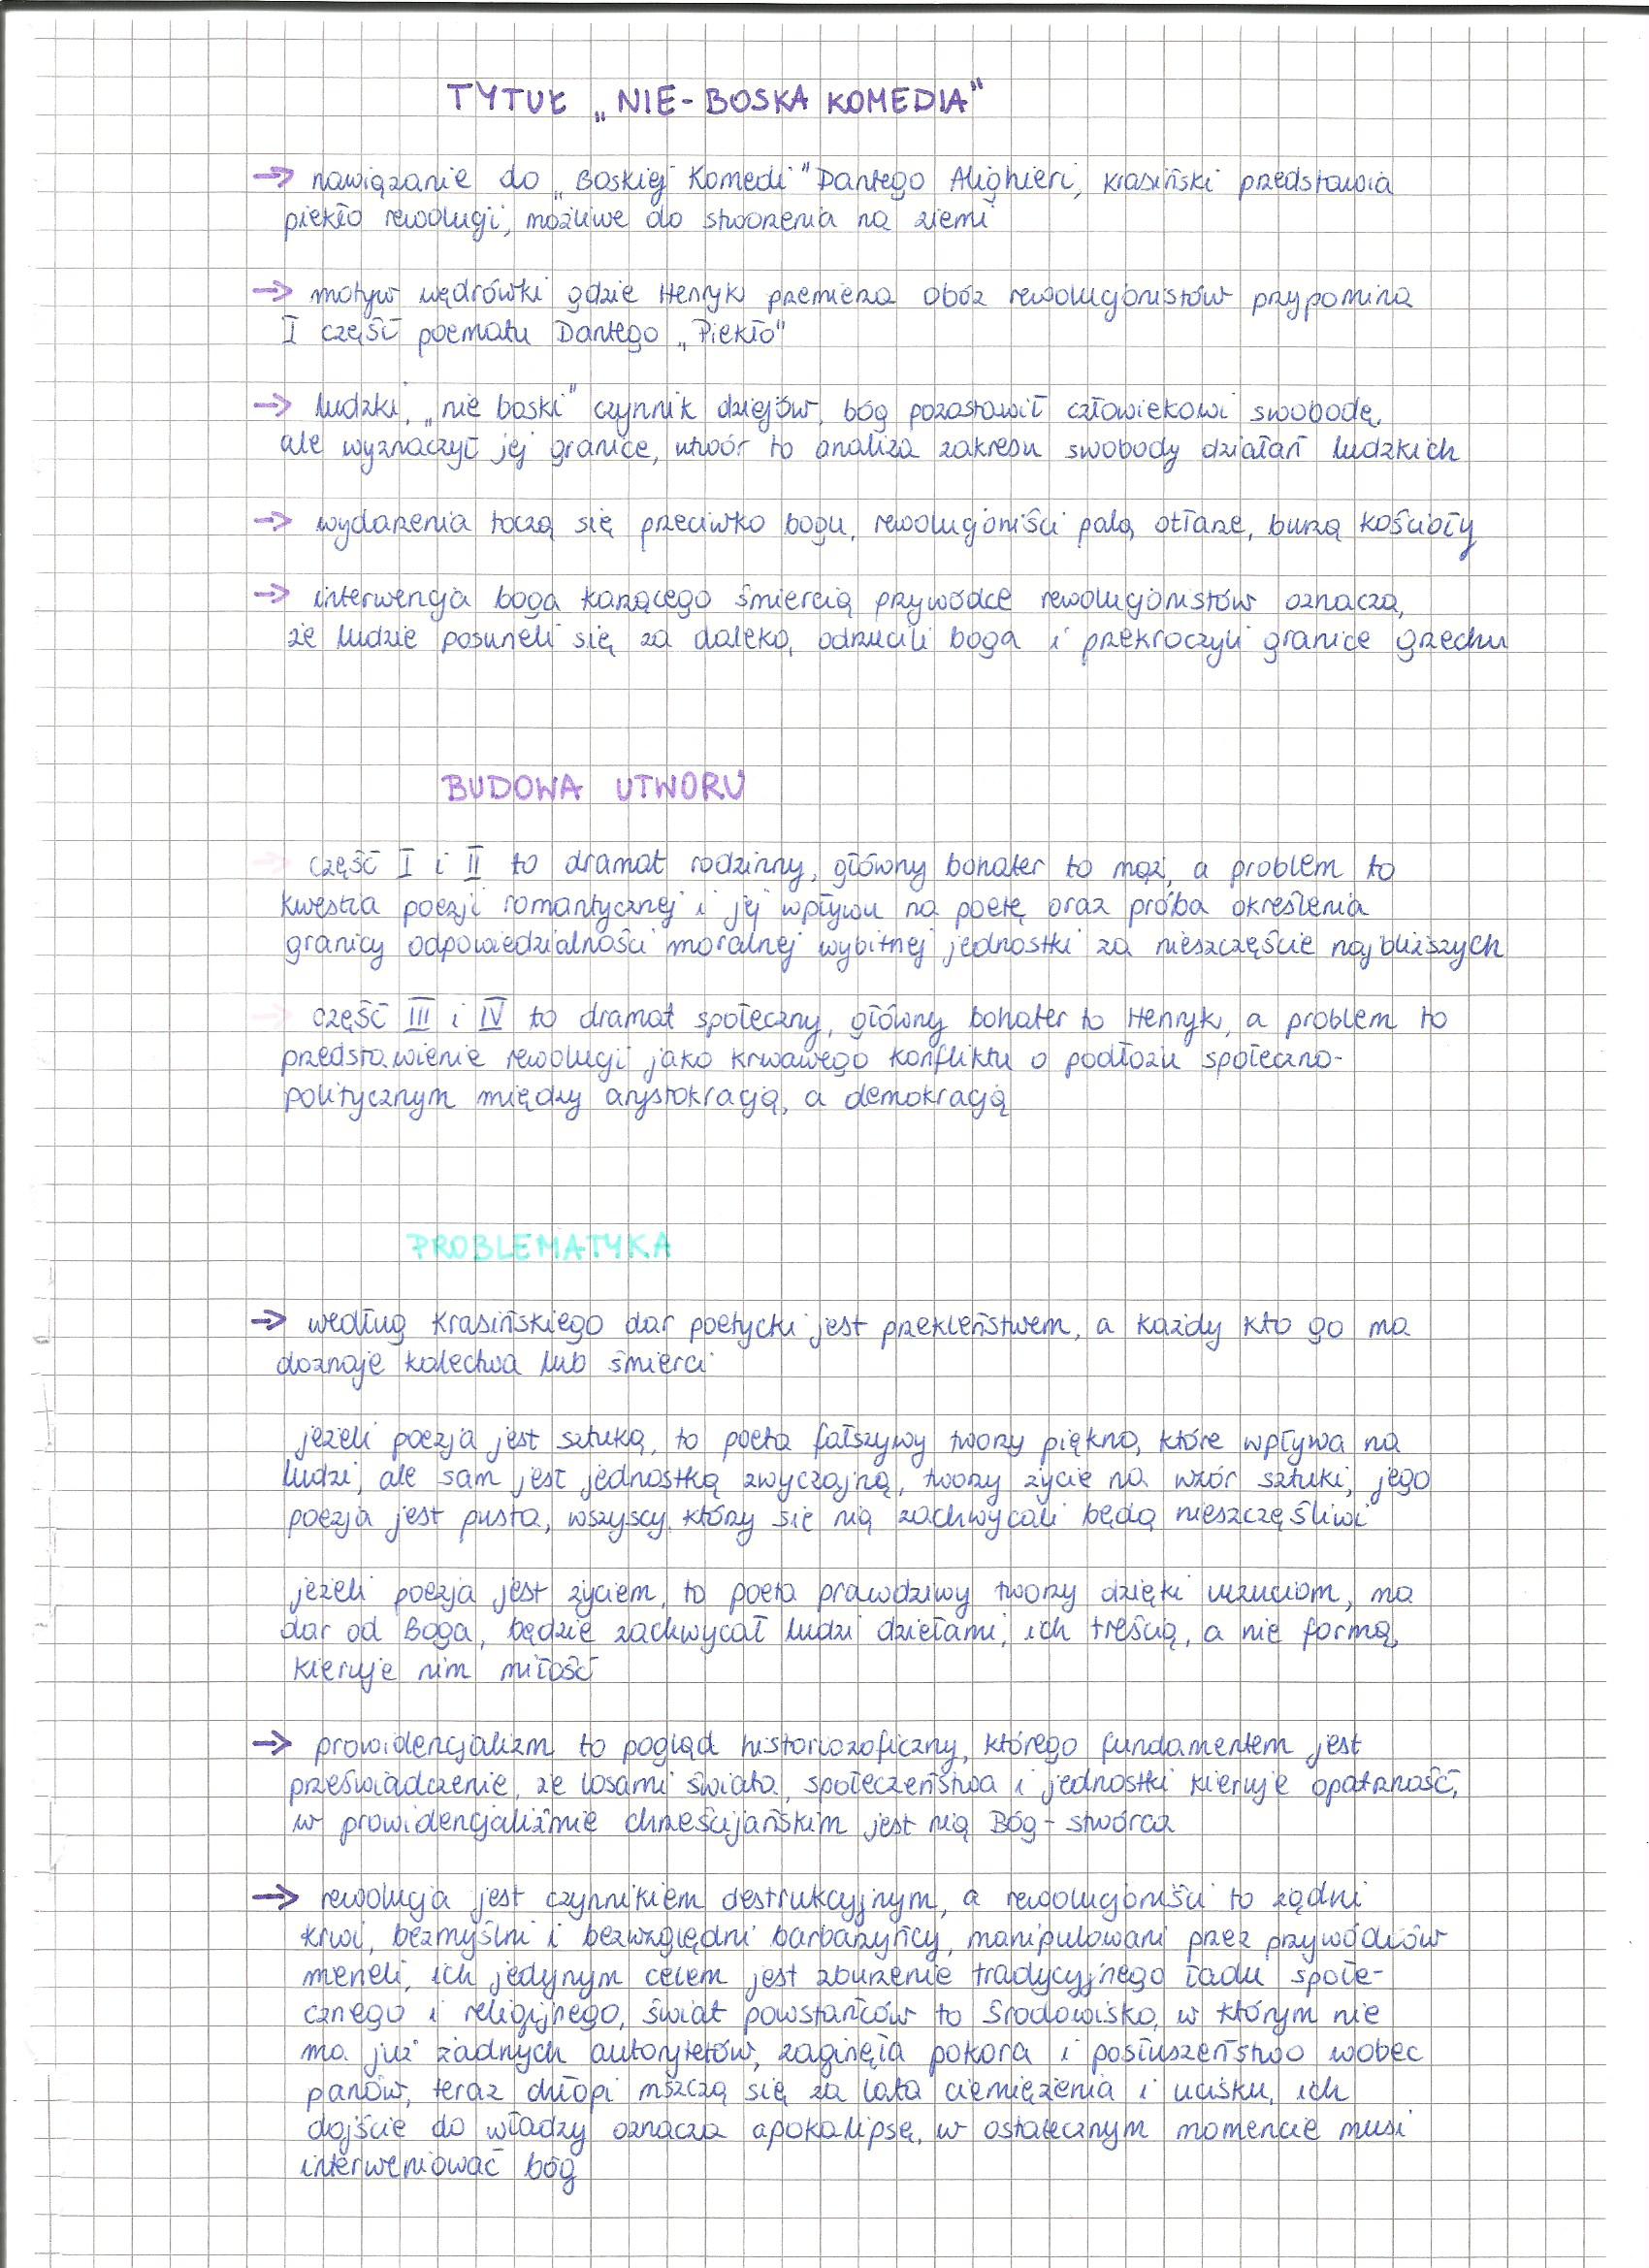 TYTUŁ „NIE-BOSKA KOMEDIA"
→ nawiązanie do „Boskiej Komedi" Dantego Alighieri, Krasiński przedstawia
piekło rewolucji, możliwe do stworzenia na ziemi
→ motyw wędrówki gdzie Henryk przemierza obóz rewolucjonistów przypomina
I część poematu Dantego „Piekło"
→ ludzki, „nie boski" czynnik dziejów, bóg pozostawił człowiekowi swobodę,
ale wyznaczył jej granice, utwór to analiza zakresu swobody działań ludzkich
→ wydarzenia toczą się przeciwko bogu, rewolucjoniści palą ołtarze, burzą kościoły
→ interwencja boga karzącego śmiercią przywódcę rewolucjonistów oznacza,
że ludzie posuneli się za daleko, odrzucili boga i przekroczyli granice grzechu
BUDOWA UTWORU
→ część I i II to dramat rodzinny, główny bohater to mąż, a problem to
kwestia poezji romantycznej i jej wpływu na poetę oraz próba określenia
granicy odpowiedzialności moralnej wybitnej jednostki za nieszczęście najbliższych
→ część III i IV to dramat społeczny, główny bohater to Henryk, a problem to
przedstawienie rewolucji jako krwawego konfliktu o podłożu społeczno-
politycznym między arystokracją, a demokracją
PROBLEMATYKA
→ według Krasińskiego dar poetycki jest przekleństwem, a każdy kto go ma
doznaje kalectwa lub śmierci
jeżeli poezja jest sztuką, to poeta fałszywy tworzy piękno, które wpływa na
ludzi, ale sam jest jednostką zwyczajną, tworzy życie na wzór sztuki, jego
poezja jest pusta, wszyscy, którzy się nią zachwycali będą nieszczęśliwi
jeżeli poezja jest życiem, to poeta prawdziwy tworzy dzięki uczuciom, ma
dar od Boga, będzie zachwycał ludzi dziełami, ich treścią, a nie formą,
kieruje nim miłość
→ prowidencjalizm to pogląd historiozoficzny, którego fundamentem jest
przeświadczenie, że losami świata, społeczeństwa i jednostki kieruje opatrzność,
w prowidencjaliźmie chrześcijańskim jest nią Bóg - stwórca
→ rewolucja jest czynnikiem destrukcyjnym, a rewolucjoniści to żądni
krwi, bezmyślni i bezwzględni barbarzyńcy, manipulowani przez przywódców
meneli, ich jedynym celem jest zburzenie tradycyjnego ładu społe-
cznego i religijnego, świat powstańców to środowisko, w którym nie
ma już żadnych autorytetów, zaginęła pokora i posłuszeństwo wobec
panów, teraz chłopi mszczą się za lata ciemiężenia i ucisku, ich
dojście do władzy oznacza apokalipsę, w ostatecznym momencie musi
interweniować bóg